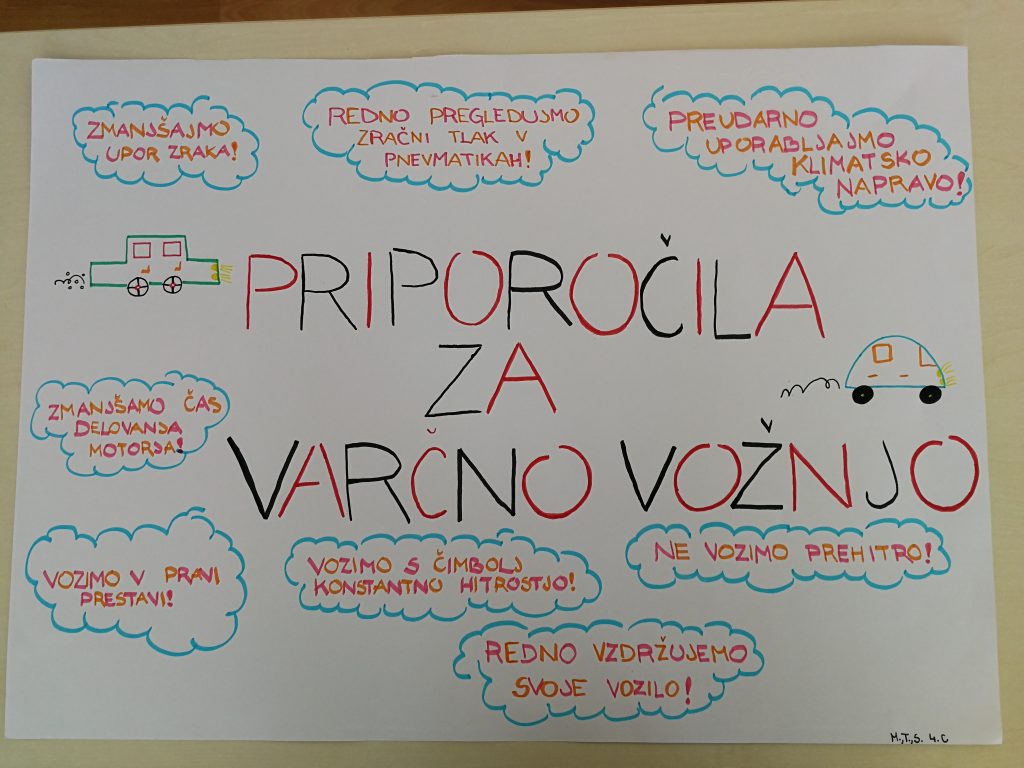 ZMANJŠAJMO
UPOR ZRAKA!
REDNO PREGLEDUJMO
ZRAČNI TLAK V
PNEVMATIKAH!
PREUDARNO
UPORABLJAJMO
KLIMATSKO
NAPRAVO!
PRIPOROČILA
ZA
VARČNO VOŽNJO
ZMANJŠAMO ČAS
DELOVANJA
MOTORJA!
VOZIMO V PRAVI
PRESTAVI!
VOZIMO S ČIMBOLJ
KONSTANTNO HITROSTJO!
NE VOZIMO PREHITRO!
REDNO VZDRŽUJEMO
SVOJE VOZILO!
M.,T.,S. 4.C